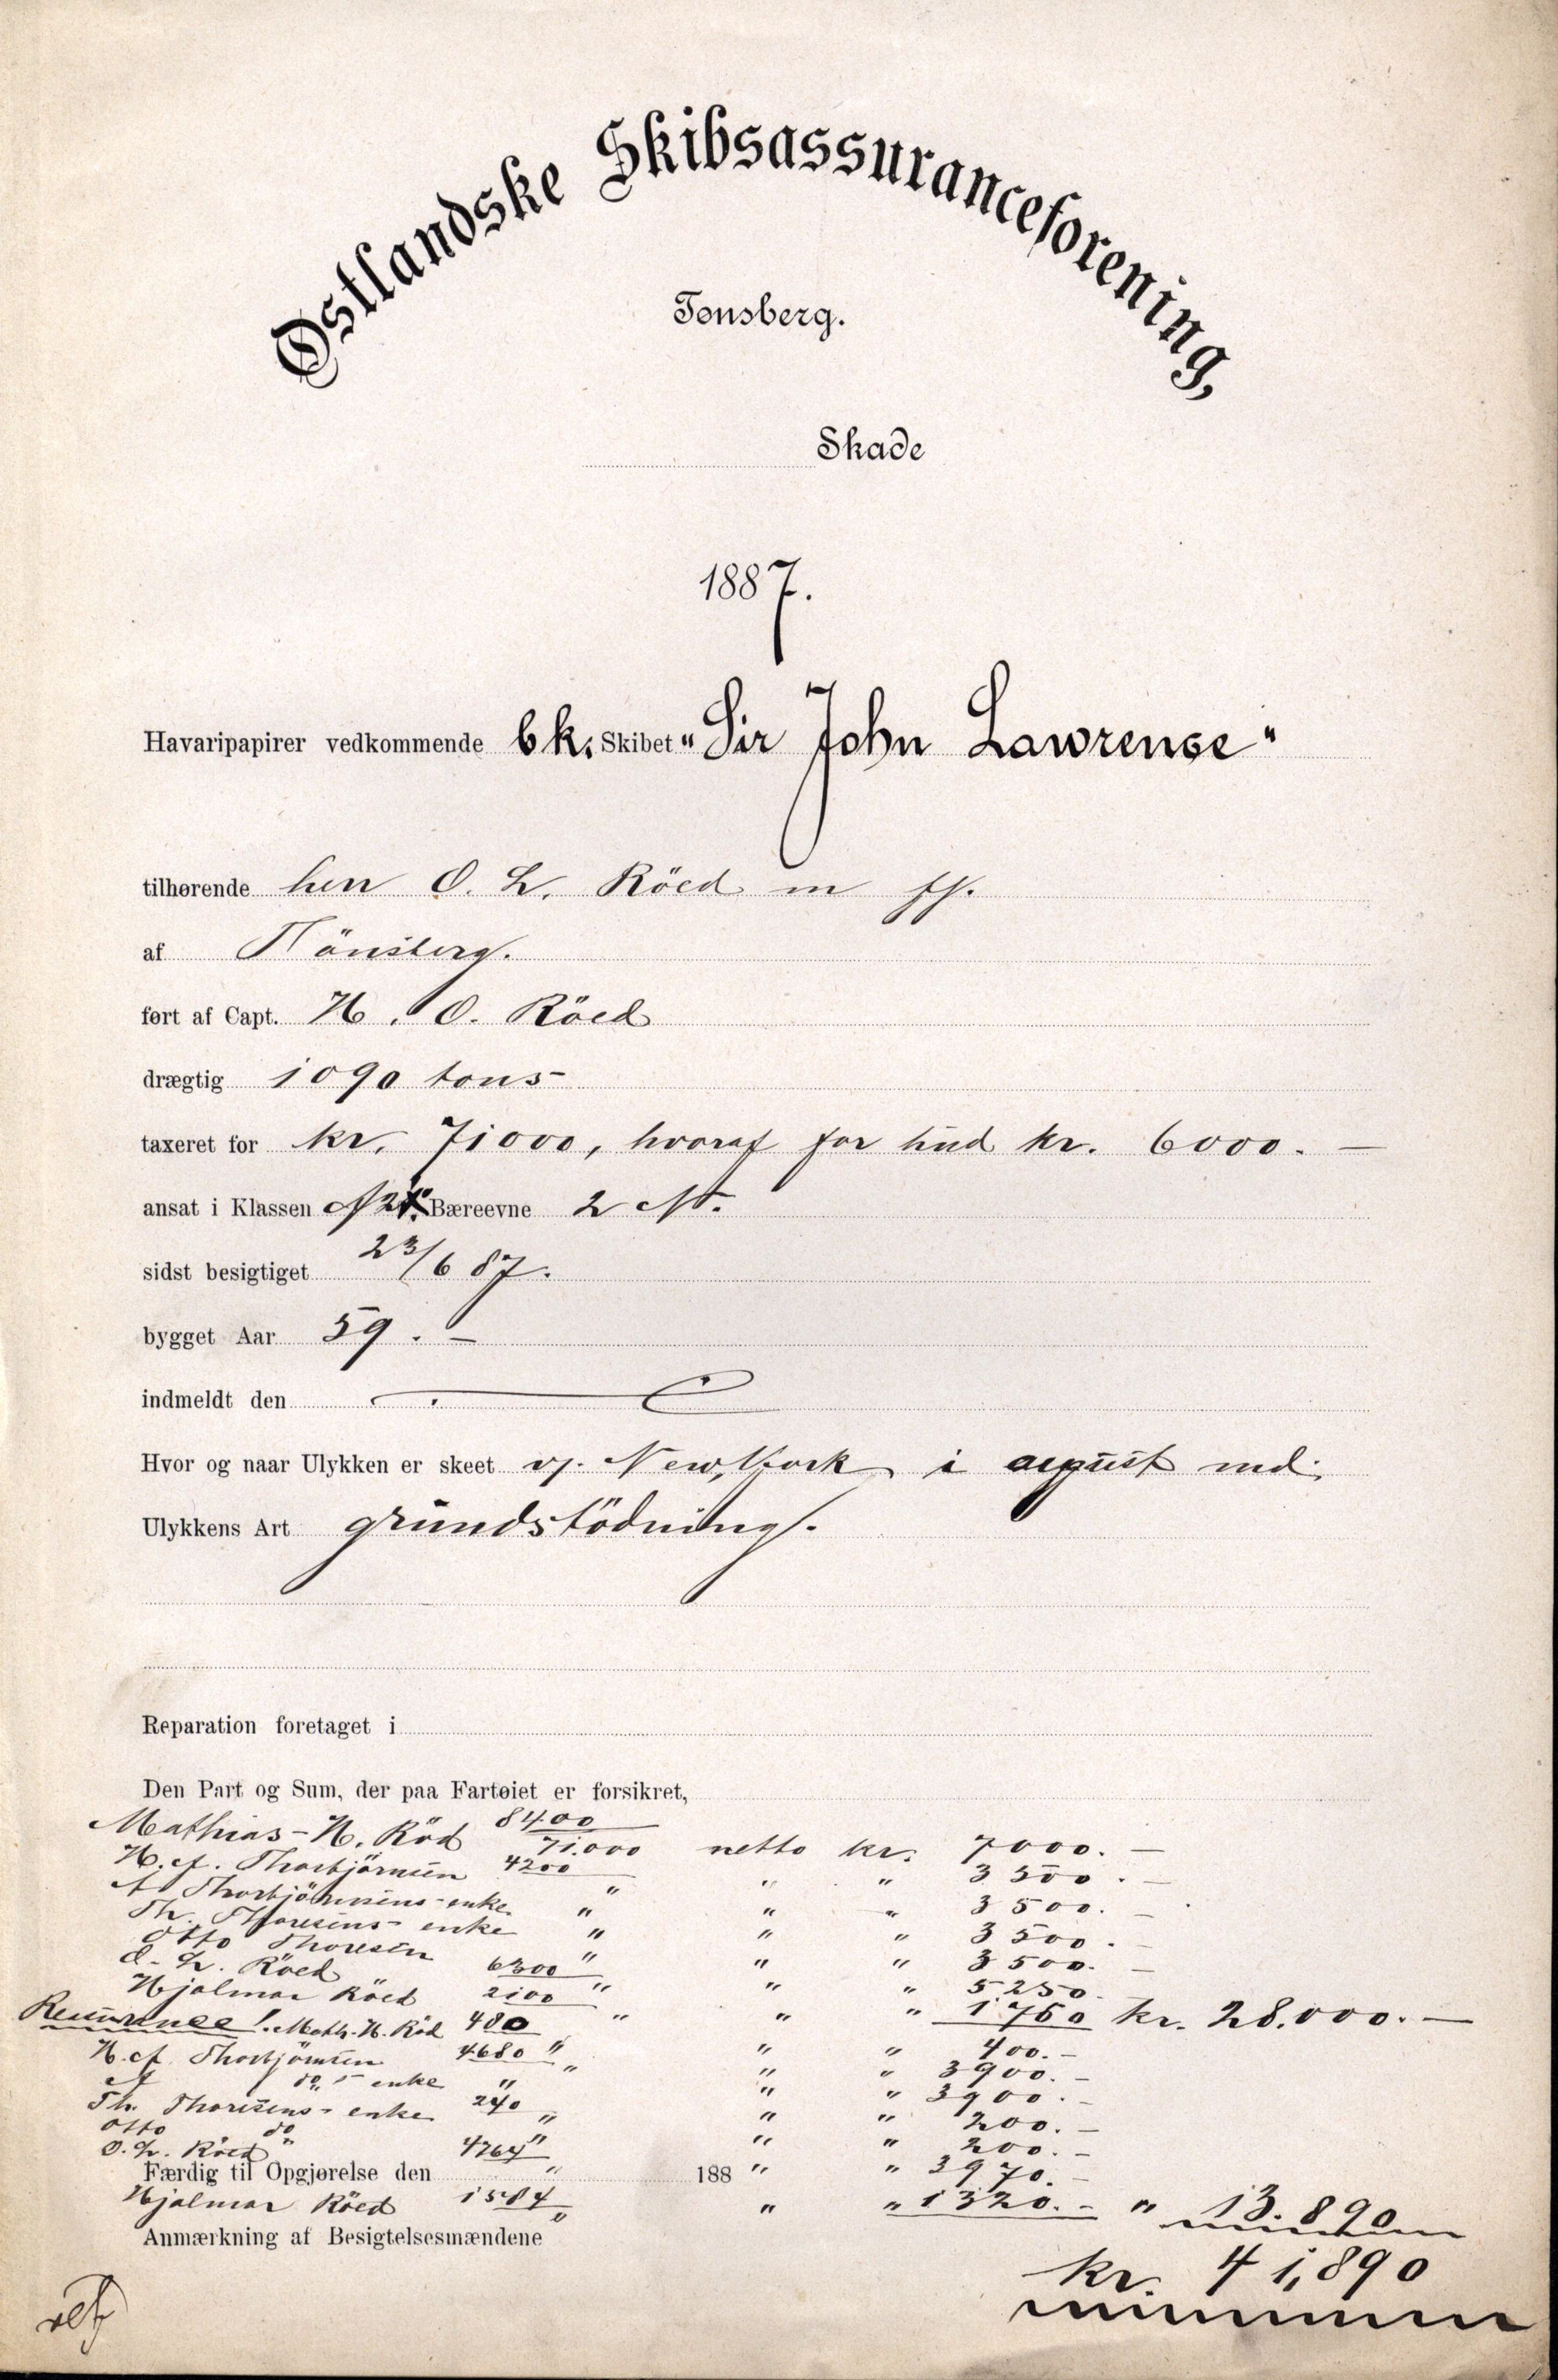 Østlandske Skibsassuranceforening,
Tønsberg.
Skade
1887.
Havaripapirer vedkommende bk. Skibet "Sir John Lawrence"
tilhørende herr O. L. Röed m fl.
af Tönsberg.
ført af Capt. H. O. Röed
drægtig 1090 tons
taxeret for kr. 71000, hvoraf for hud kr. 6000. —
ansat i Klassen Bæreevne 2
sidst besigtiget 23/6 87.
bygget Aar 59. —
indmeldt den
Hvor og naar Ulykken er skeet v. New York i august md.
Ulykkens Art grundstödning.
Reparation foretaget i
Den Part og Sum, der paa Fartøiet er forsikret,
Mathias H. Röd 8400/71.000 netto kr. 7000. —
H. A. Thorbjörnsen 4200 " " " 3500. —
A Thorbjörnsens enke " " " 3500. —
Th. Thoresens enke " " " 3500. —
Otto Thoresen " " " 3500. —
O. L. Röed 6300 " " " 5250.
Hjalmar Röed 2100 " " " 1750 kr. 28.000. —
Reassurance: Math. H. Röd 480 " " " 400. —
H. A. Thorbjörnsen 4680 " " " 3900. —
A do enke " " " 3900. —
Th. Thoresens enke 240 " " " 200. —
Otto do " " " 200. —
O. L. Röed 4764 " " " 3970. —
Færdig til Opgjørelse den 188
Hjalmar Röed 1584 " " " 1320. — " 13.890
Anmærkning af Besigtelsesmændene
kr. 41,890